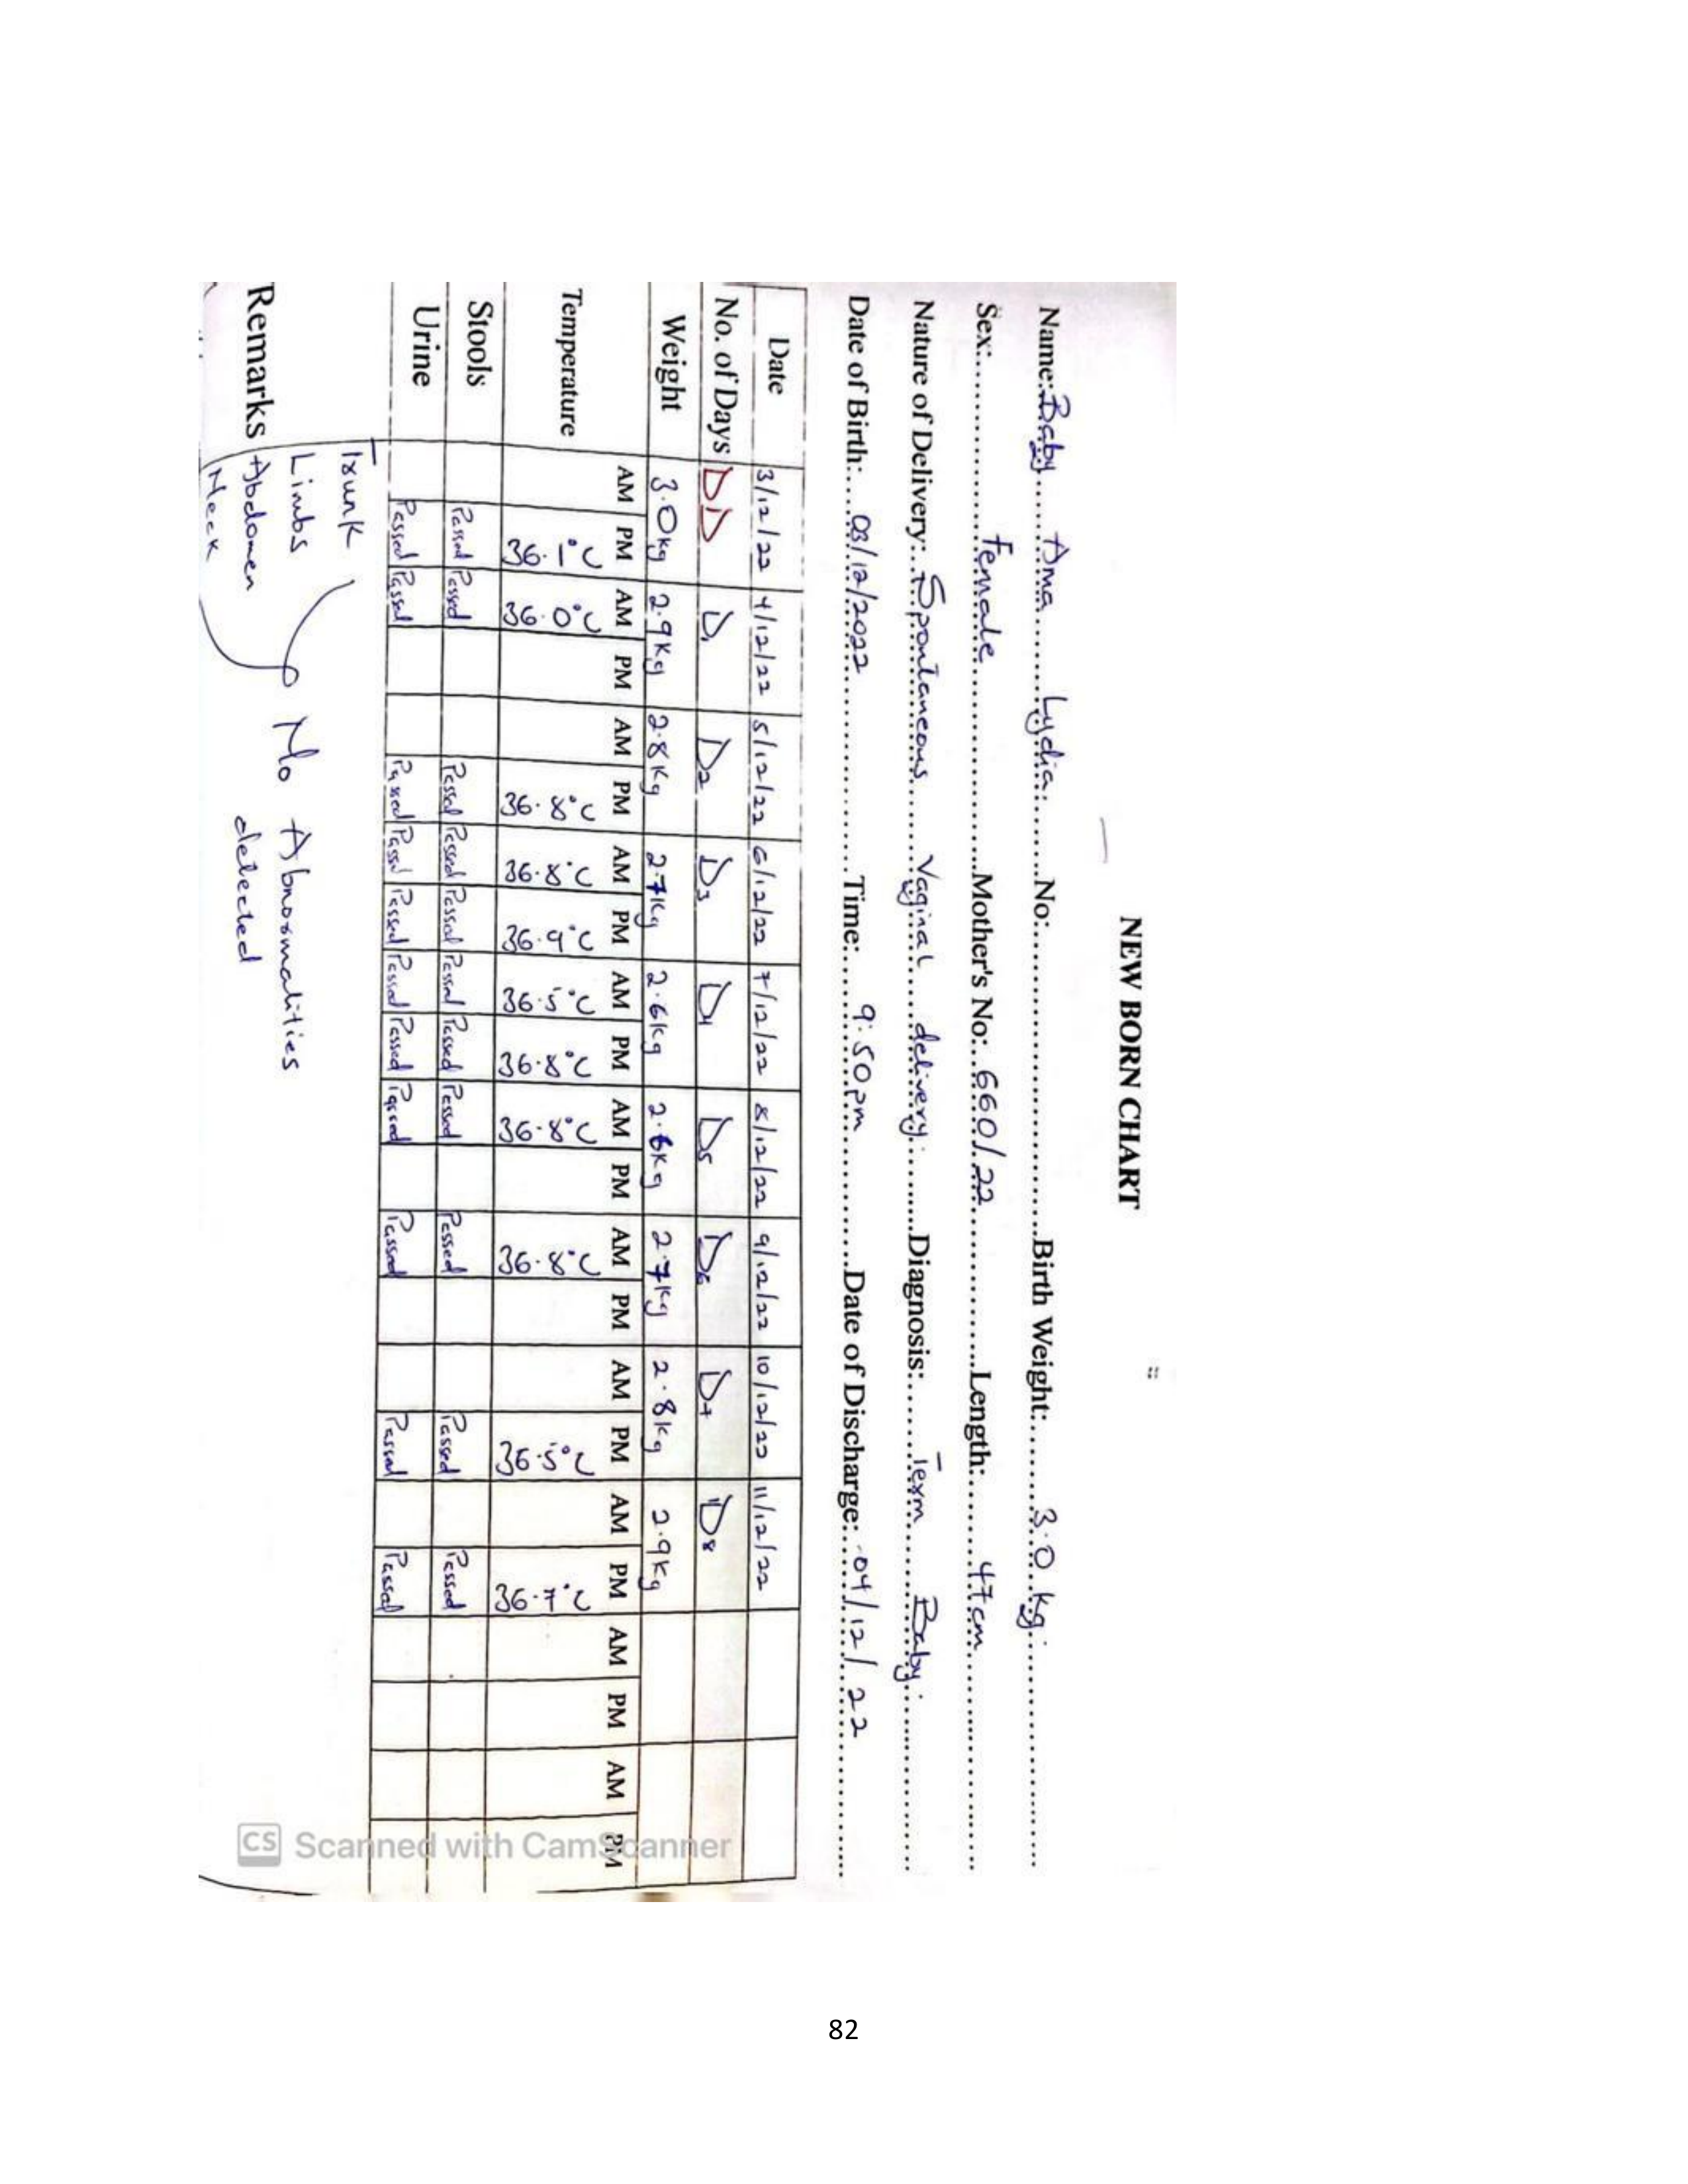 NEW BORN CHART
Name: Baby Ama Lydia: No: Birth Weight: 3.0 kg.
Sex: Female Mother's No: 660/22 Length: 47cm
Nature of Delivery: Spontaneous Vaginal delivery. Diagnosis: Term Baby.
Date of Birth: 03/12/2022 Time: 9:50pm Date of Discharge: 04/12/22
Date 3/12/22 4/12/22 5/12/22 6/12/22 7/12/22 8/12/22 9/12/22 10/12/22 11/12/22
No. of Days DD D1 D2 D3 D4 D5 D6 D7 D8
Weight 3.0kg 2.9Kg 2.8Kg 2.7Kg 2.6Kg 2.6Kg 2.7Kg 2.8Kg 2.9Kg
AM PM AM PM AM PM AM PM AM PM AM PM AM PM AM PM AM PM AM PM AM PM
Temperature 36.1°C 36.0°C 36.8°C 36.8°C 36.9°C 36.5°C 36.8°C 36.8°C 36.8°C 36.5°C 36.7°C
Stools Passed Passed Passed Passed Passed Passed Passed Passed Passed Passed Passed
Urine Passed Passed Passed Passed Passed Passed Passed Passed Passed Passed Passed
Trunk
Limbs
Remarks Abdomen
Neck
No Abnormalities
detected
CS Scanned with CamScanner
82